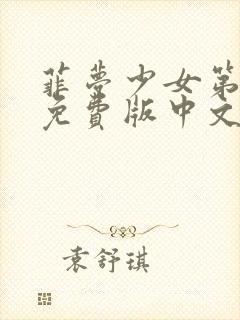 菲梦少女第
免費版中文
袁舒琪